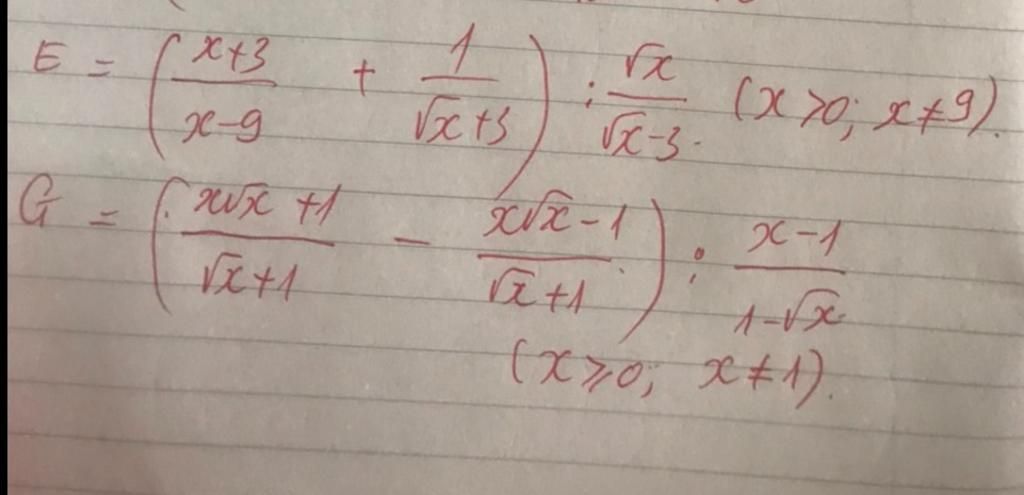 E = ( (x+3)/(x-9) + 1/(√x+3) ) : √x/(√x-3) (x>0; x≠9).
G = ( (x√x+1)/(√x+1) - (x√x-1)/(√x+1) ) : (x-1)/(1-√x)
(x⩾0; x≠1).